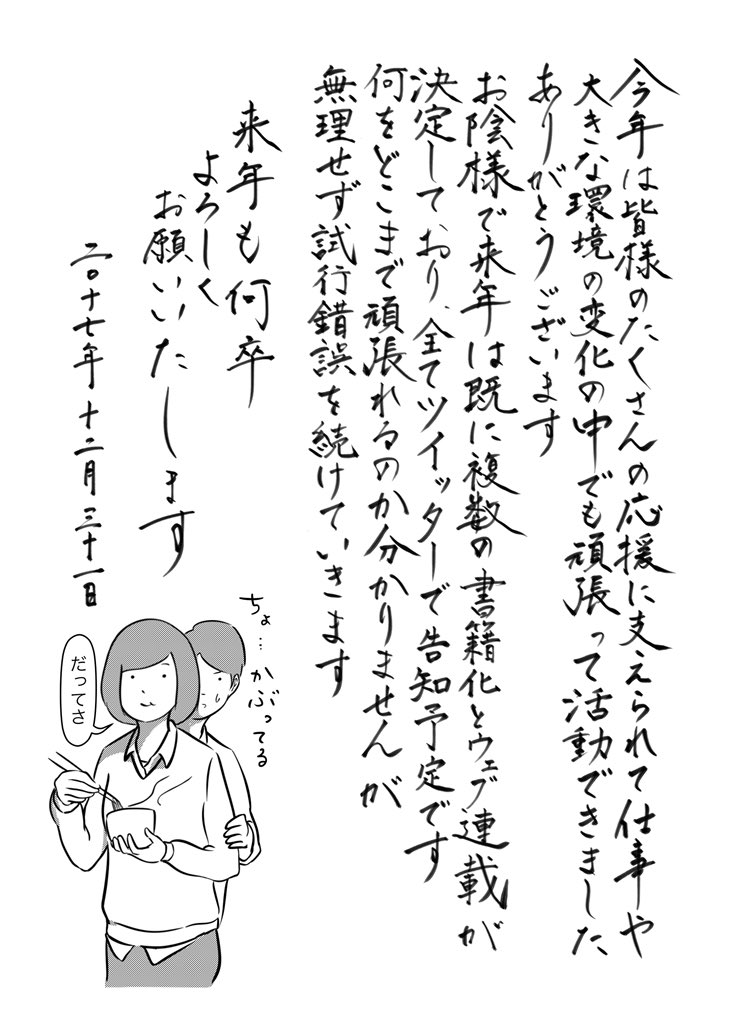 今年は皆様のたくさんの応援に支えられて仕事や
大きな環境の変化の中でも頑張って活動できました
ありがとうございます
お陰様で来年は既に複数の書籍化とウェブ連載が
決定しており、全てツイッターで告知予定です
何をどこまで頑張れるのか分かりませんが
無理せず試行錯誤を続けていきます
来年も何卒
よろしく
お願いいたします
二〇十七年 十二月 三十一日
ちょ…
かぶってる
だってさ